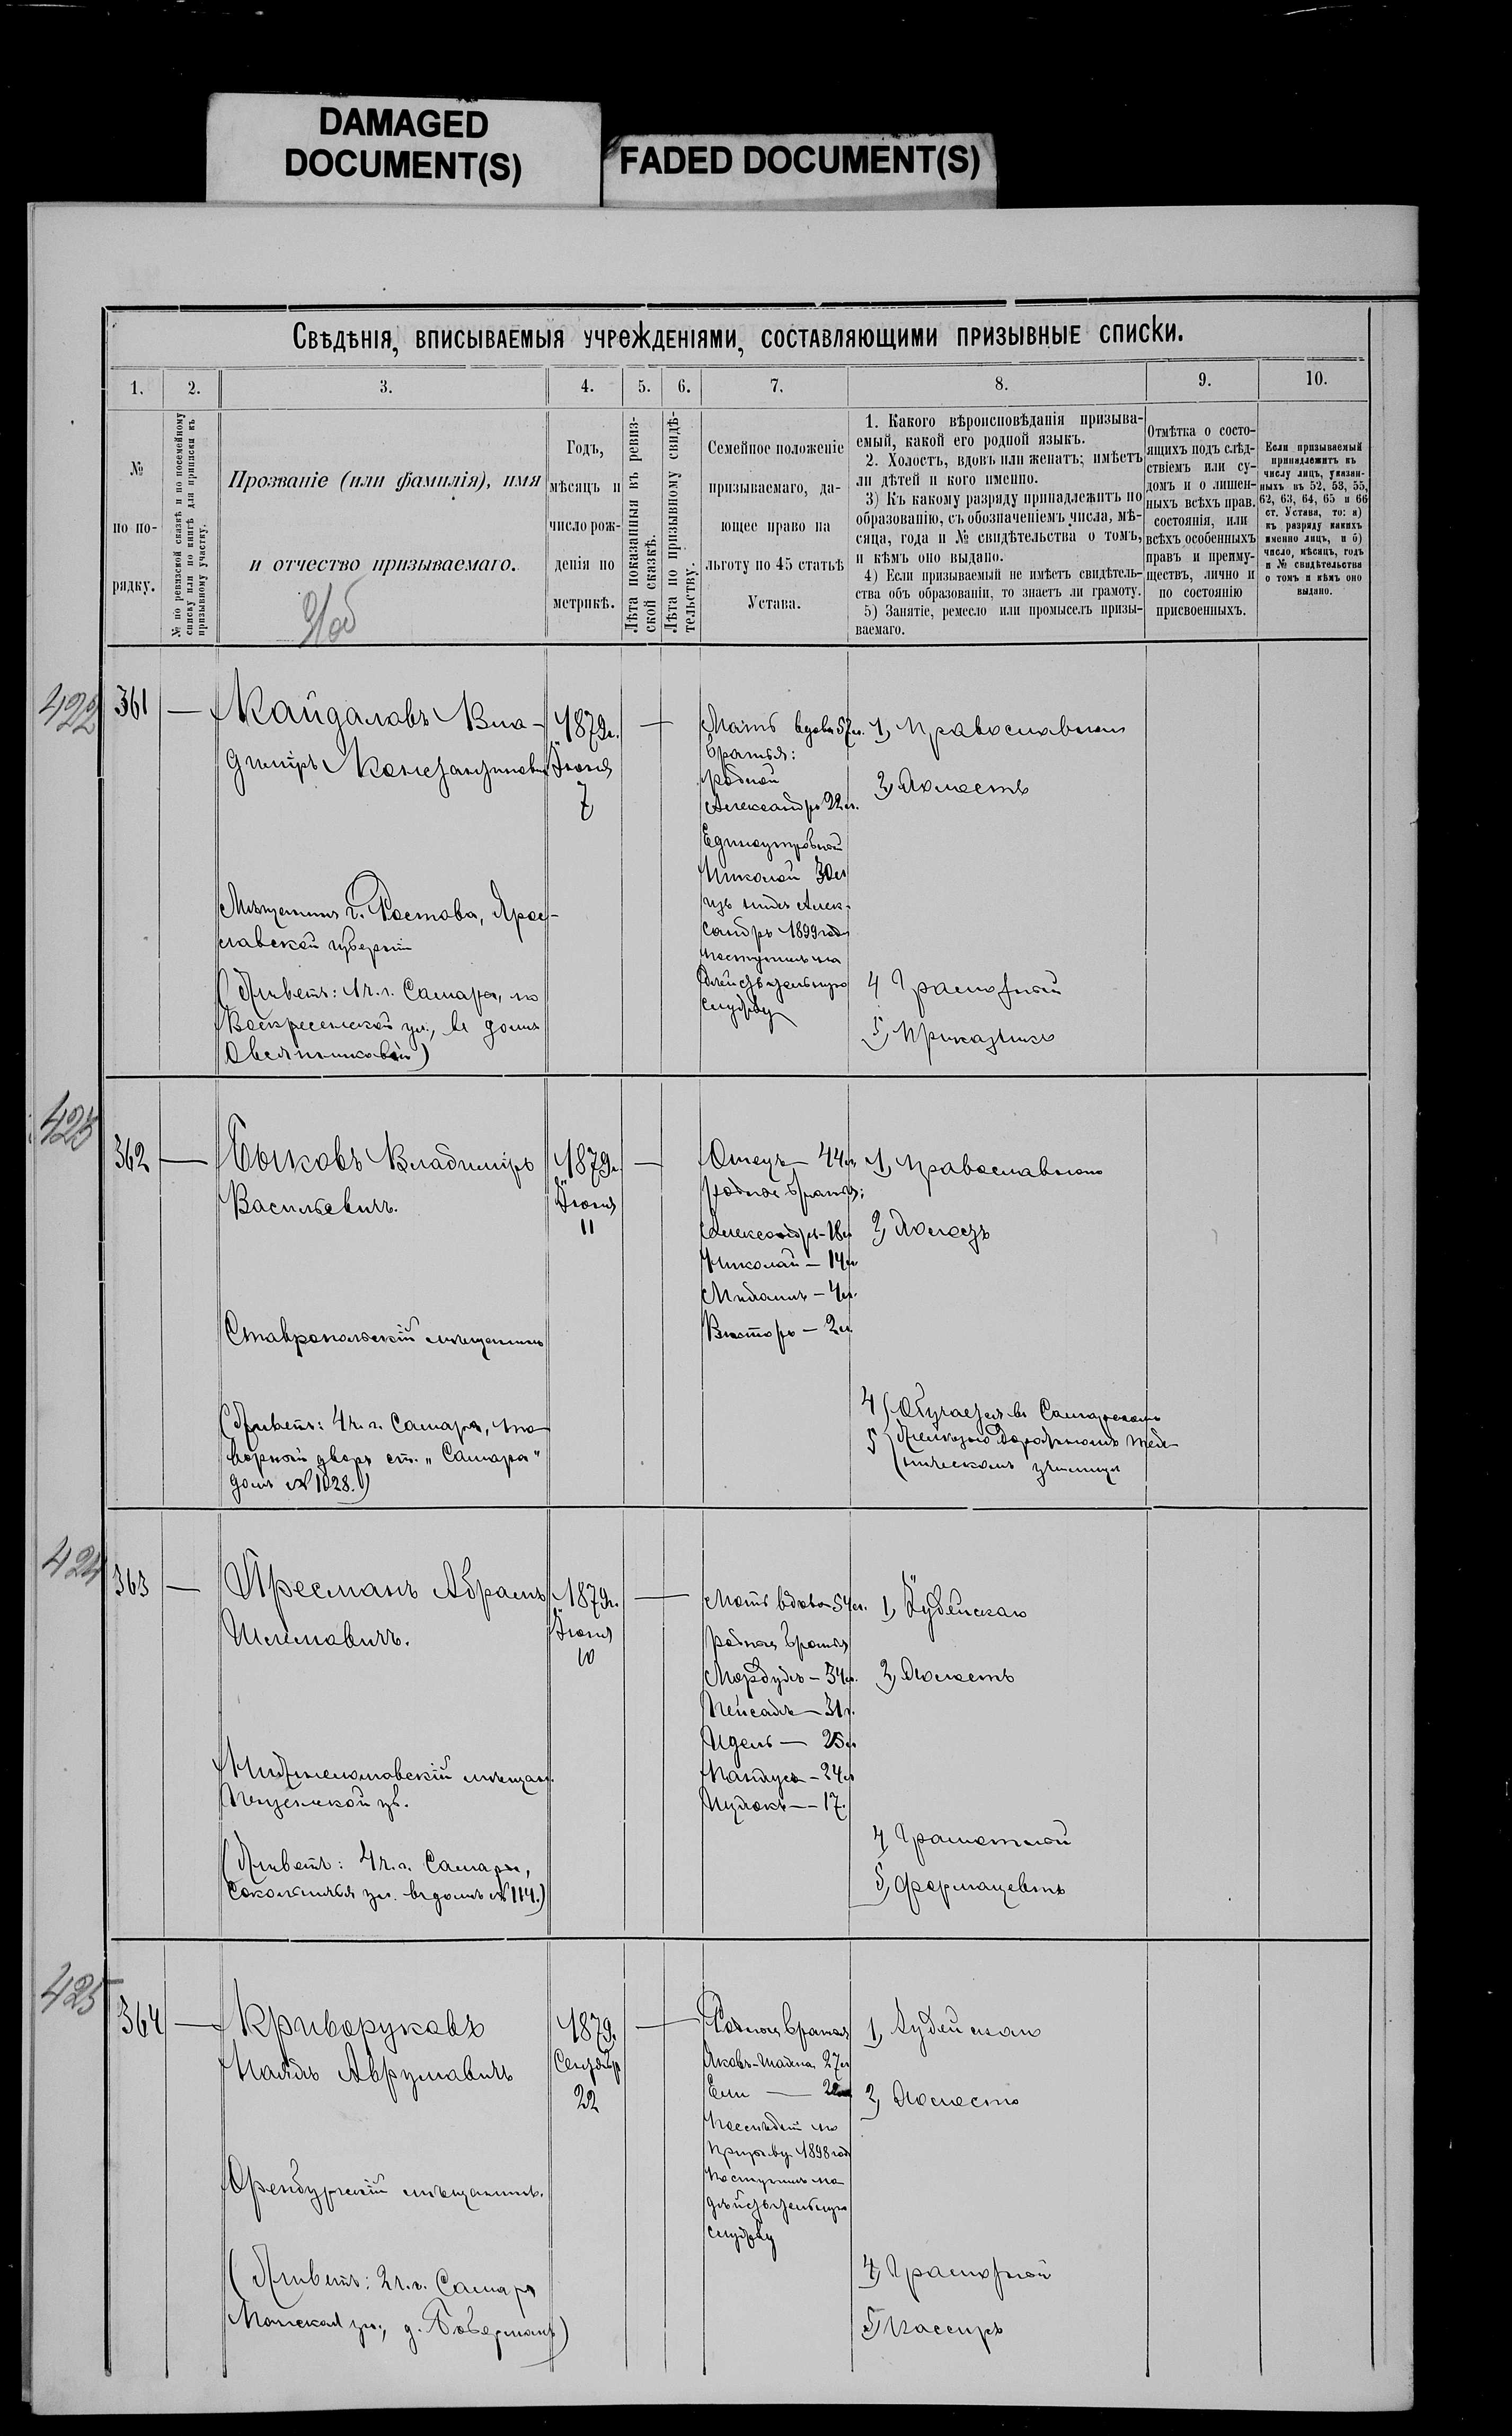 DAMAGED
DOCUMENT(S)
FADED DOCUMENT(S)
Свѣдѣнія, вписываемыя учрежденіями, составляющими призывные списки.
1.
2.
3.
4.
5.
6.
7.
8.
9.
10.
№
по по-
рядку.
№ по ревизской сказкѣ и по посемейному
списку или по книгѣ для приписки къ
призывному участку.
Прозваніе (или фамилія), имя
и отчество призываемаго.
Годъ,
мѣсяцъ и
число рож-
денія по
метрикѣ.
Лѣта показанныя въ ревиз-
ской сказкѣ.
Лѣта по призывному свидѣ-
тельству.
Семейное положеніе
призываемаго, да-
ющее право на
льготу по 45 статьѣ
Устава.
1. Какого вѣроисповѣданія призыва-
емый, какой его родной языкъ.
2. Холостъ, вдовъ или женатъ; имѣетъ
ли дѣтей и кого именно.
3) Къ какому разряду принадлежитъ по
образованію, съ обозначеніемъ числа, мѣ-
сяца, года и № свидѣтельства о томъ,
и кѣмъ оно выдано.
4) Если призываемый не имѣетъ свидѣтель-
ства объ образованіи, то знаетъ ли грамоту.
5) Занятіе, ремесло или промыселъ призы-
ваемаго.
Отмѣтка о состо-
ящихъ подъ слѣд-
ствіемъ или су-
домъ и о лишен-
ныхъ всѣхъ прав.
состоянія, или
всѣхъ особенныхъ
правъ и преиму-
ществъ, лично и
по состоянію
присвоенныхъ.
Если призываемый
принадлежитъ къ
числу лицъ, указан-
ныхъ въ 52, 53, 55,
62, 63, 64, 65 и 66
ст. Устава, то: а)
къ разряду какихъ
именно лицъ, и б)
число, мѣсяцъ, годъ
и № свидѣтельства
о томъ и кѣмъ оно
выдано.
422
361
Кайдаловъ Вла-
диміръ Константиновичъ
Мѣщанинъ г. Ростова, Яро-
славской губерніи
(Живетъ: 1 ч. г. Самара, по
Воскресенской ул., въ домѣ
Овсянниковой)
1879г.
Іюня
7
Мать вдова 57л.
братья:
родной
Александръ 22л.
Единоутробный
Николай 30л
изъ нихъ Алек-
сандръ 1899 года
поступилъ на
дѣйствительную
службу
1, Православнаго
2, Холостъ
4 Грамотный
5, Приказчикъ
423
362
Быковъ Владиміръ
Васильевичъ.
Ставропольскій мѣщанинъ
(Живетъ: 4 ч. г. Самара, то
варный дворъ ст. „Самара"
домъ № 1028.)
1879г
Іюня
11
Отецъ — 44л
родные братья:
Александръ - 18л
Николай — 14л
Михаилъ — 4л.
Викторъ — 2л
1, Православнаго
2, Холостъ
4 Обучается въ Самарскомъ
5 Желѣзнодорожномъ тех-
ническомъ училищѣ
424
363
Пресманъ Абрамъ
Шлемовичъ.
Нижнеломовскій мѣщан.
Пензенской гу.
(Живетъ: 4 ч. г. Самары,
Сокольничья ул. въ домѣ № 114.)
1879г.
Іюня
10
Мать вдова 54л.
родные братья
Мордухъ — 34л.
Пейсахъ — 31г.
Идель — 25л
— 24л
— 17.
1, Іудейскаго
2, Холостъ
4, Грамотный
5, Фармацевтъ
425
364
Криворуковъ
Аврумовичъ
Оренбургскій мѣщанинъ.
(Живетъ: 2 ч. г. Самара
ул., д. Боберманъ)
1879.
Сентябр
22
Родные братья
Яковъ- 27л
Ели —
Послѣдній по
призыву 1898 года
поступилъ на
дѣйствительную
службу
1, Іудейскаго
2, Холостъ
4, Грамотный
5, Кассиръ